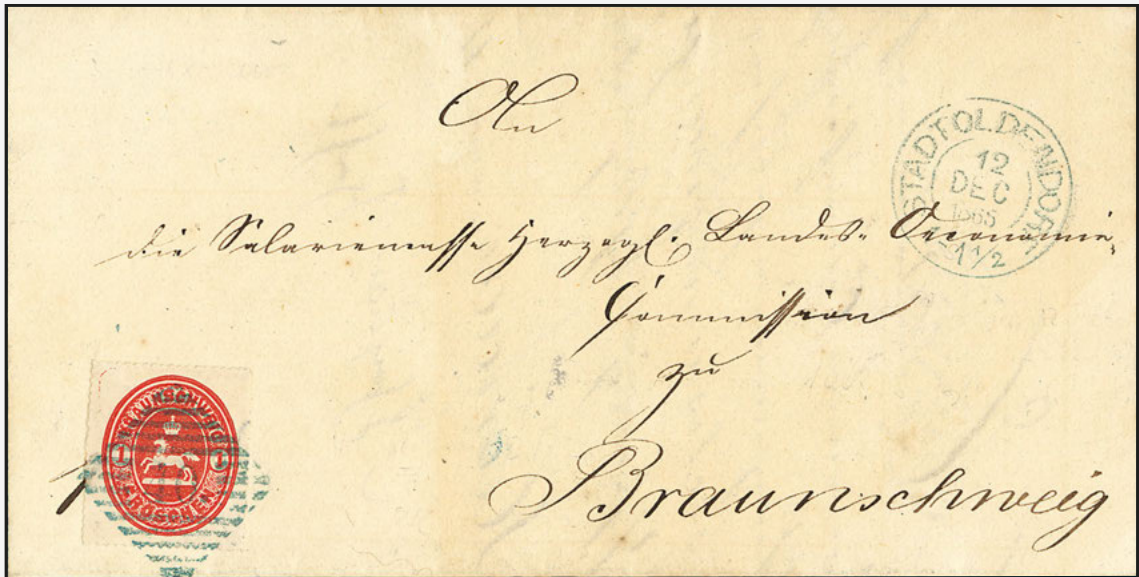 An
STADTOLDENDORF
12
DEC
1865
1 1/2
die Salariencasse Herzogl. Landes- Oeconomie-
Commission
zu
BRAUNSCHWEIG
1 1
GROSCHEN
Braunschweig